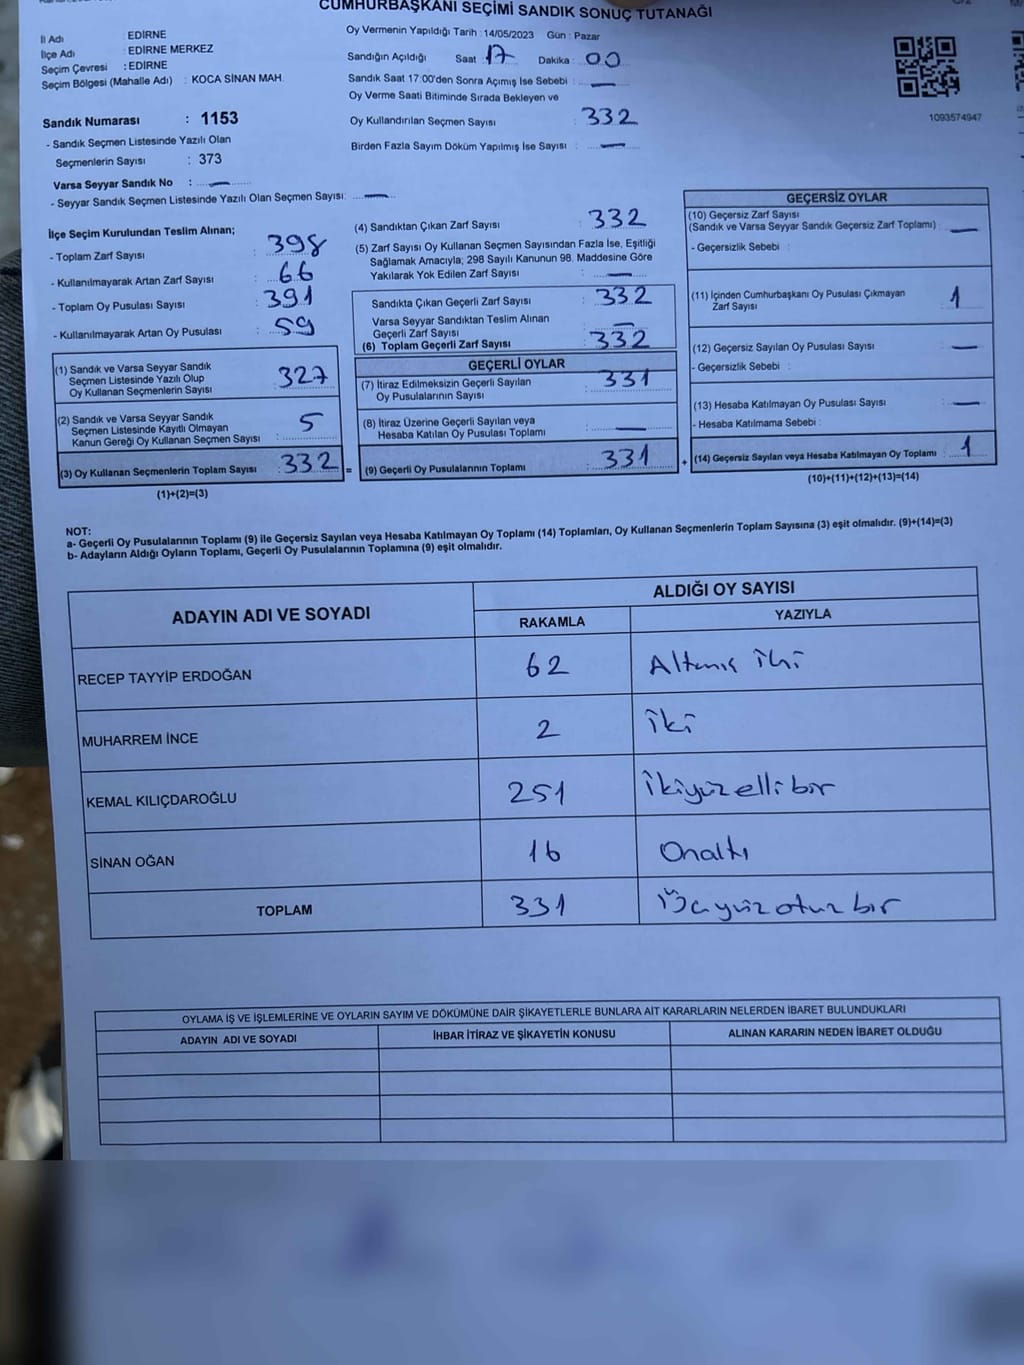 CUMHURBAŞKANI SEÇİMİ SANDIK SONUÇ TUTANAĞI
İl Adı : EDİRNE
İlçe Adı : EDİRNE MERKEZ
Seçim Çevresi : EDİRNE
Seçim Bölgesi (Mahalle Adı) : KOCA SİNAN MAH.
Oy Vermenin Yapıldığı Tarih : 14/05/2023 Gün : Pazar
Sandığın Açıldığı Saat 17 Dakika : 00
Sandık Saat 17:00'den Sonra Açımış İse Sebebi : —
Oy Verme Saati Bitiminde Sırada Bekleyen ve
Oy Kullandırılan Seçmen Sayısı : 332
Birden Fazla Sayım Döküm Yapılmış İse Sayısı : —
1093574947
Sandık Numarası : 1153
- Sandık Seçmen Listesinde Yazılı Olan
Seçmenlerin Sayısı : 373
Varsa Seyyar Sandık No : —
- Seyyar Sandık Seçmen Listesinde Yazılı Olan Seçmen Sayısı: —
İlçe Seçim Kurulundan Teslim Alınan;
- Toplam Zarf Sayısı : 398
- Kullanılmayarak Artan Zarf Sayısı : 66
- Toplam Oy Pusulası Sayısı : 391
- Kullanılmayarak Artan Oy Pusulası : 59
(1) Sandık ve Varsa Seyyar Sandık
Seçmen Listesinde Yazılı Olup
Oy Kullanan Seçmenlerin Sayısı : 327
(2) Sandık ve Varsa Seyyar Sandık
Seçmen Listesinde Kayıtlı Olmayan
Kanun Gereği Oy Kullanan Seçmen Sayısı : 5
(3) Oy Kullanan Seçmenlerin Toplam Sayısı : 332 =
(1)+(2)=(3)
(4) Sandıktan Çıkan Zarf Sayısı : 332
(5) Zarf Sayısı Oy Kullanan Seçmen Sayısından Fazla İse, Eşitliği
Sağlamak Amacıyla; 298 Sayılı Kanunun 98. Maddesine Göre
Yakılarak Yok Edilen Zarf Sayısı : —
Sandıkta Çıkan Geçerli Zarf Sayısı : 332
Varsa Seyyar Sandıktan Teslim Alınan
Geçerli Zarf Sayısı : —
(6) Toplam Geçerli Zarf Sayısı : 332
GEÇERLİ OYLAR
(7) İtiraz Edilmeksizin Geçerli Sayılan
Oy Pusulalarının Sayısı : 331
(8) İtiraz Üzerine Geçerli Sayılan veya
Hesaba Katılan Oy Pusulası Toplamı : —
(9) Geçerli Oy Pusulalarının Toplamı : 331 +
GEÇERSİZ OYLAR
(10) Geçersiz Zarf Sayısı
(Sandık ve Varsa Seyyar Sandık Geçersiz Zarf Toplamı) : —
- Geçersizlik Sebebi :
(11) İçinden Cumhurbaşkanı Oy Pusulası Çıkmayan
Zarf Sayısı : 1
(12) Geçersiz Sayılan Oy Pusulası Sayısı : —
- Geçersizlik Sebebi :
(13) Hesaba Katılmayan Oy Pusulası Sayısı : —
- Hesaba Katılmama Sebebi :
(14) Geçersiz Sayılan veya Hesaba Katılmayan Oy Toplamı : 1
(10)+(11)+(12)+(13)=(14)
NOT:
a- Geçerli Oy Pusulalarının Toplamı (9) ile Geçersiz Sayılan veya Hesaba Katılmayan Oy Toplamı (14) Toplamları, Oy Kullanan Seçmenlerin Toplam Sayısına (3) eşit olmalıdır. (9)+(14)=(3)
b- Adayların Aldığı Oyların Toplamı, Geçerli Oy Pusulalarının Toplamına (9) eşit olmalıdır.
ADAYIN ADI VE SOYADI ALDIĞI OY SAYISI
RAKAMLA YAZIYLA
RECEP TAYYİP ERDOĞAN 62 Altmış iki
MUHARREM İNCE 2 iki
KEMAL KILIÇDAROĞLU 251 ikiyüzellibir
SİNAN OĞAN 16 Onaltı
TOPLAM 331 Üçyüzotuzbir
OYLAMA İŞ VE İŞLEMLERİNE VE OYLARIN SAYIM VE DÖKÜMÜNE DAİR ŞİKAYETLERLE BUNLARA AİT KARARLARIN NELERDEN İBARET BULUNDUKLARI
ADAYIN ADI VE SOYADI İHBAR İTİRAZ VE ŞİKAYETİN KONUSU ALINAN KARARIN NEDEN İBARET OLDUĞU